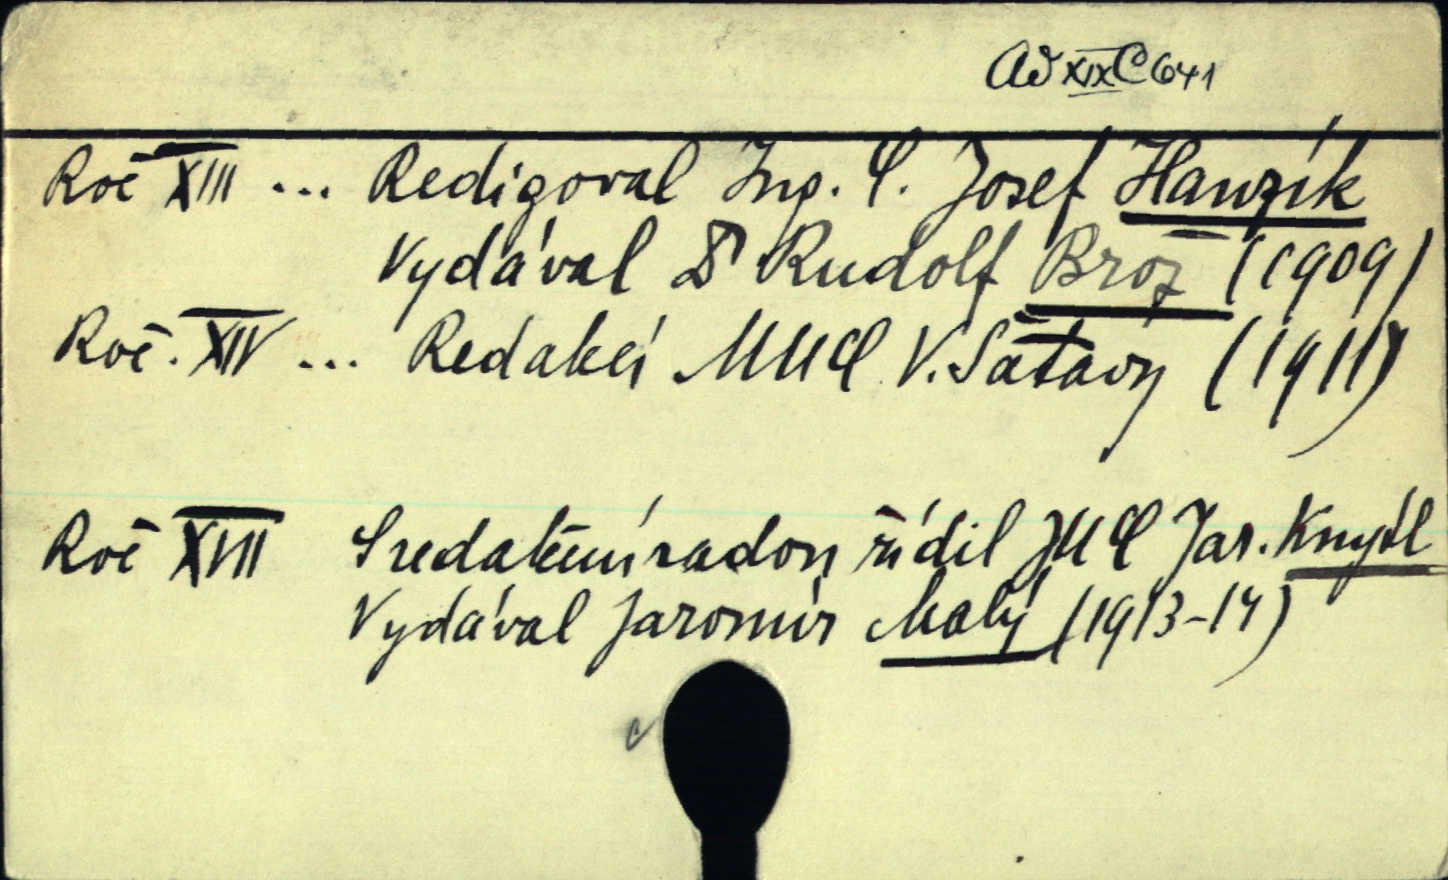 Ad XIX C 641
Roč XIII ... Redigoval Ing. C. Josef Hanzík
Vydával Dr Rudolf Brož (1909)
Roč. XIV ... Redakcí MUC V. Šatavy (1911)
Roč XVII S redakční radou řídil JUC Jar. Kmyál
Vydával Jaromír Malý (1913-14)